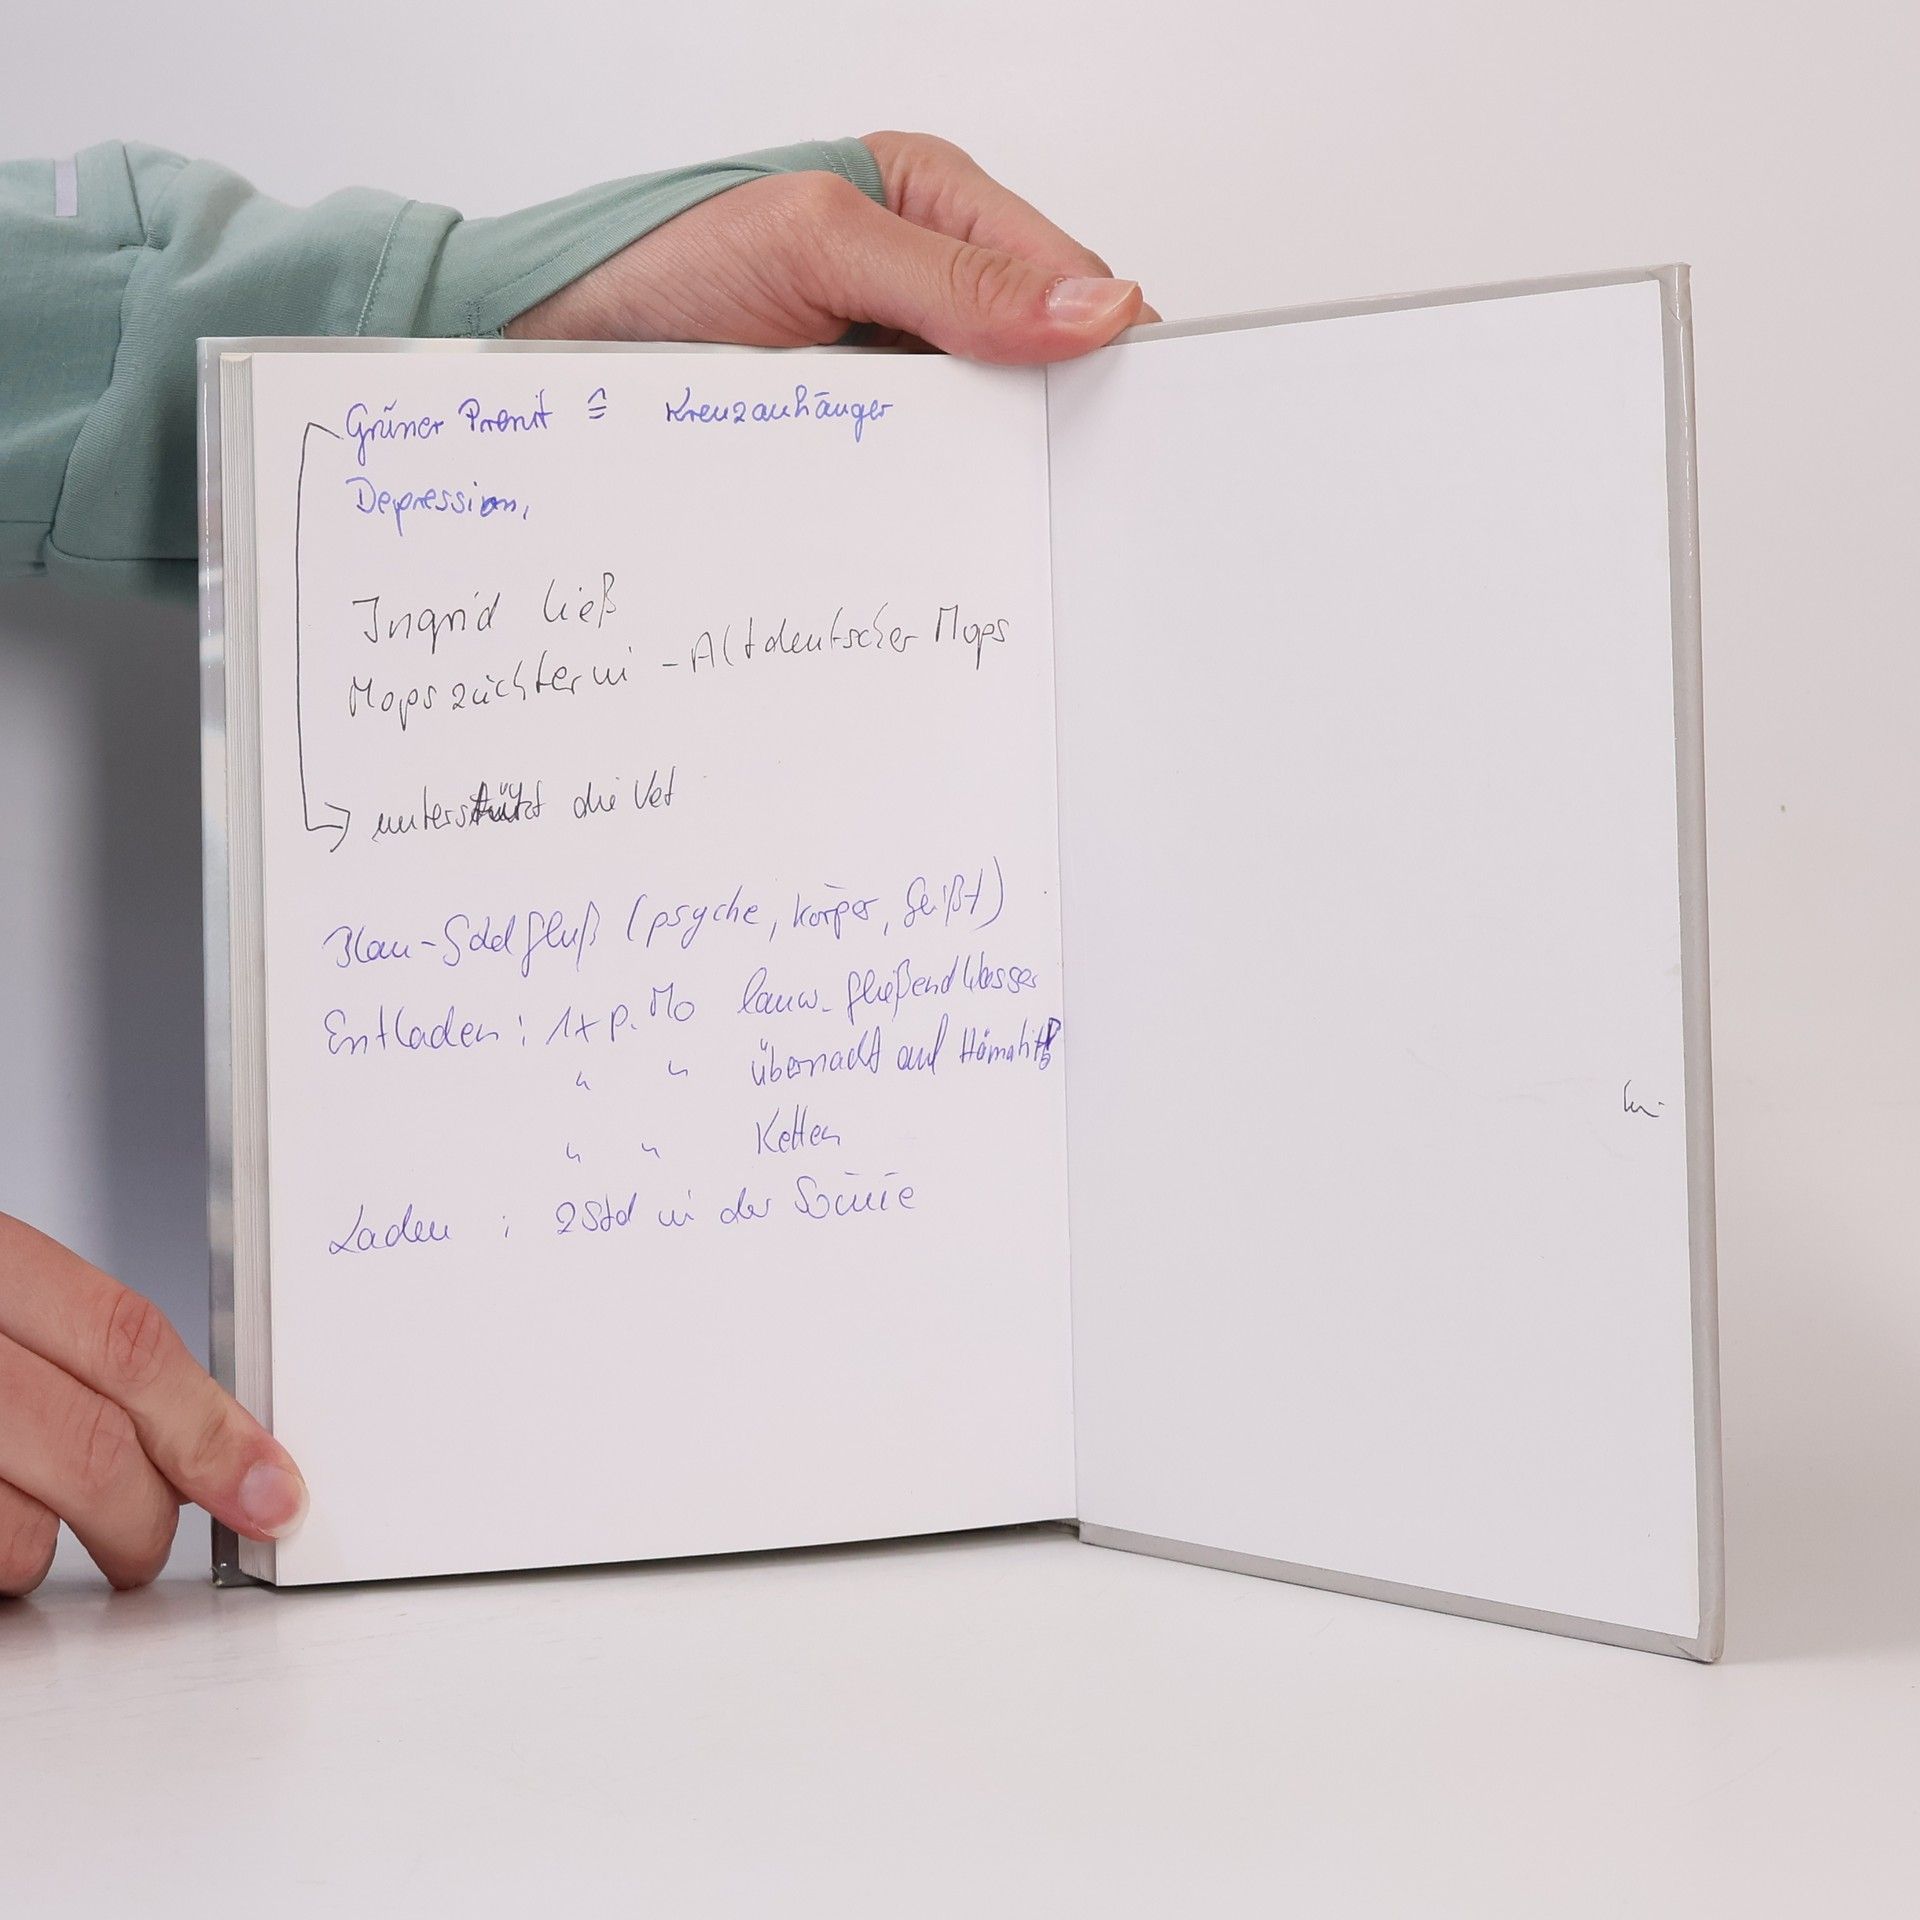 Grüner Prenit ≙ Kreuzanhänger
Depression,
Ingrid Ließ
Mopszüchterin - Altdeutscher Mops
unterstützt die Vet
Blau-Goldfluß (psyche, Körper, Geißt)
Entladen : 1x p. Mo lauw. fließend Wasser
" " übernacht auf Hämatit
" " Ketten
Laden : 2 Std in der Sonne